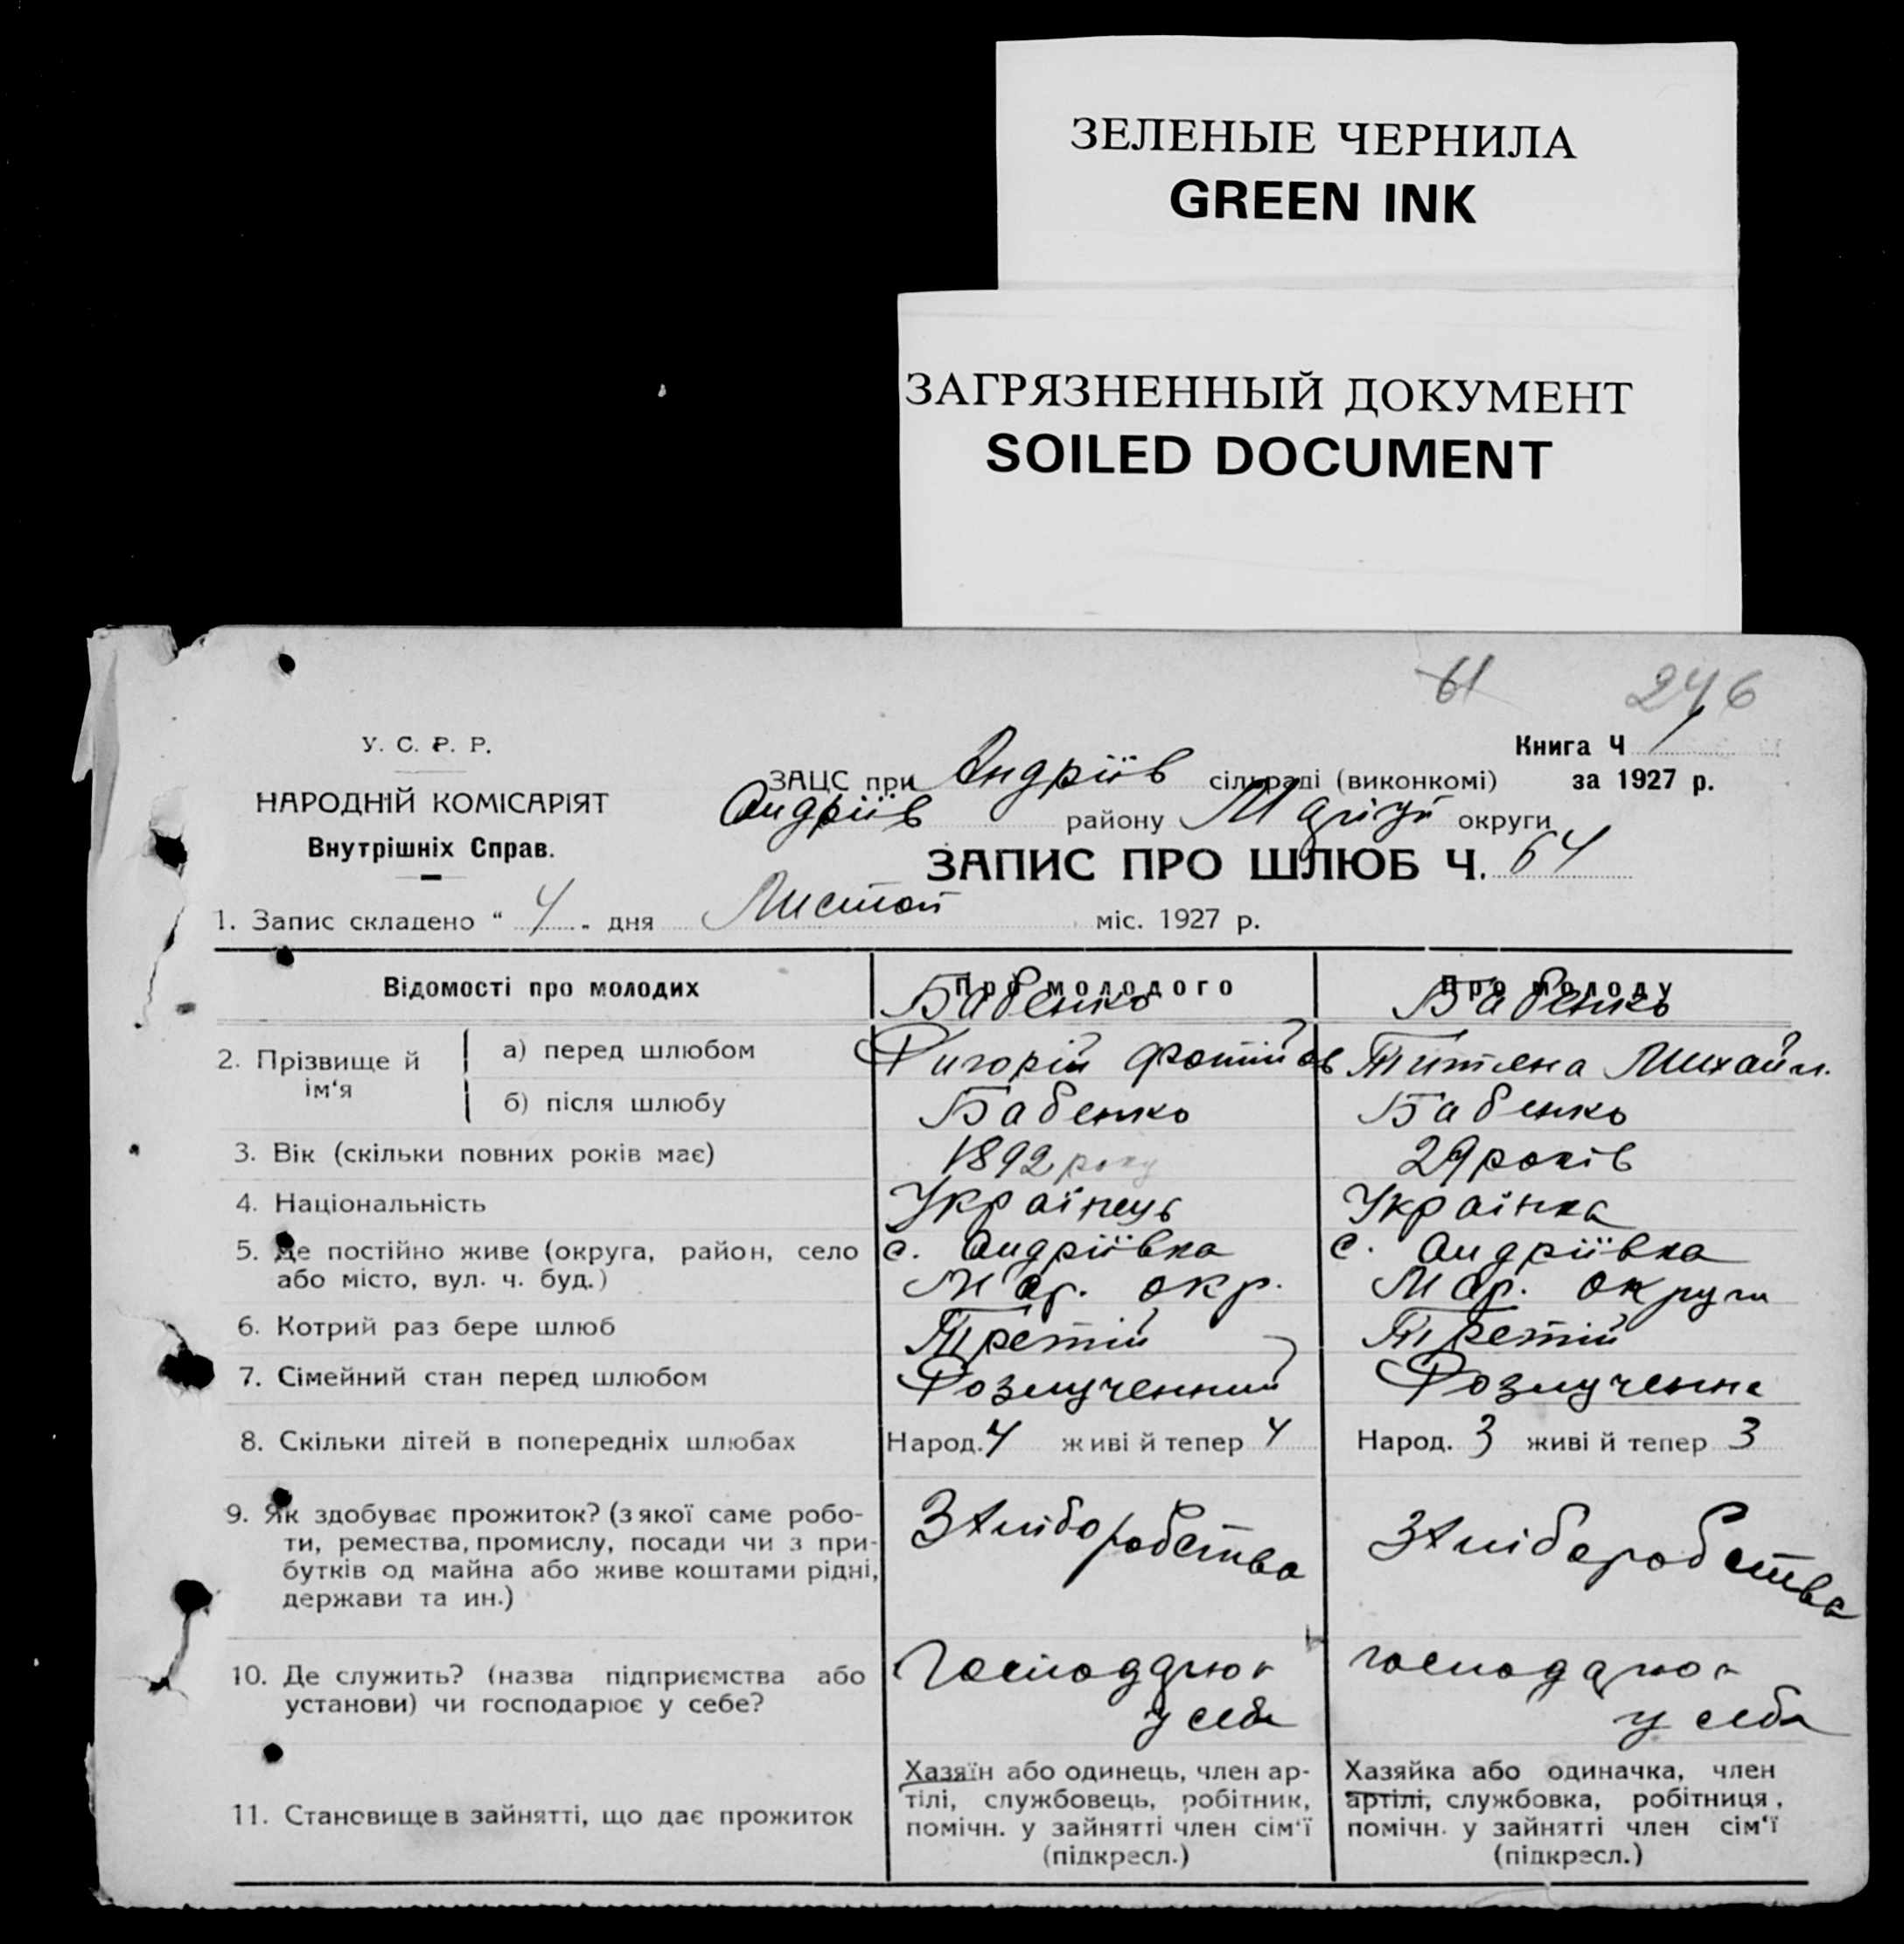 ЗЕЛЕНЫЕ ЧЕРНИЛА
GREEN INK
ЗАГРЯЗНЕННЫЙ ДОКУМЕНТ
SOILED DOCUMENT
61 246
У. С. Р. Р.
НАРОДНІЙ КОМІСАРІЯТ
Внутрішніх Справ.
Книга Ч 1
ЗАЦС при Андріїв сільраді (виконкомі) за 1927 р.
Андріїв району округи
ЗАПИС ПРО ШЛЮБ Ч. 64
1. Запис складено “ 4 „ дня Листоп міс. 1927 р.
Відомості про молодих Про молодого Про молоду
Бабенко Бабенко
2. Прізвище й ім‘я а) перед шлюбом Григорій Фотійов Титяна Михайл.
б) після шлюбу Бабенко Бабенко
3. Вік (скільки повних років має) 1892 року 29 років
4. Національність Українець Українка
5. Де постійно живе (округа, район, село с. Андріївка с. Андріївка
або місто, вул. ч. буд.) Мар. окр. Мар. округи
6. Котрий раз бере шлюб Третій Третій
7. Сімейний стан перед шлюбом Розлученний Розлученна
8. Скільки дітей в попередніх шлюбах Народ. 4 живі й тепер 4 Народ. 3 живі й тепер 3
9. Як здобуває прожиток? (з якої саме робо-
ти, ремества, промислу, посади чи з при-
бутків од майна або живе коштами рідні,
держави та ин.)
З хліборобства З хліборобства
10. Де служить? (назва підприємства або
установи) чи господарює у себе?
Господарює
у себе
господарює
у себе
11. Становище в зайнятті, що дає прожиток
Хазяїн або одинець, член ар-
тілі, службовець, робітник,
помічн. у зайнятті член сім‘ї
(підкресл.)
Хазяйка або одиначка, член
артілі, службовка, робітниця,
помічн. у зайнятті член сім‘ї
(підкресл.)